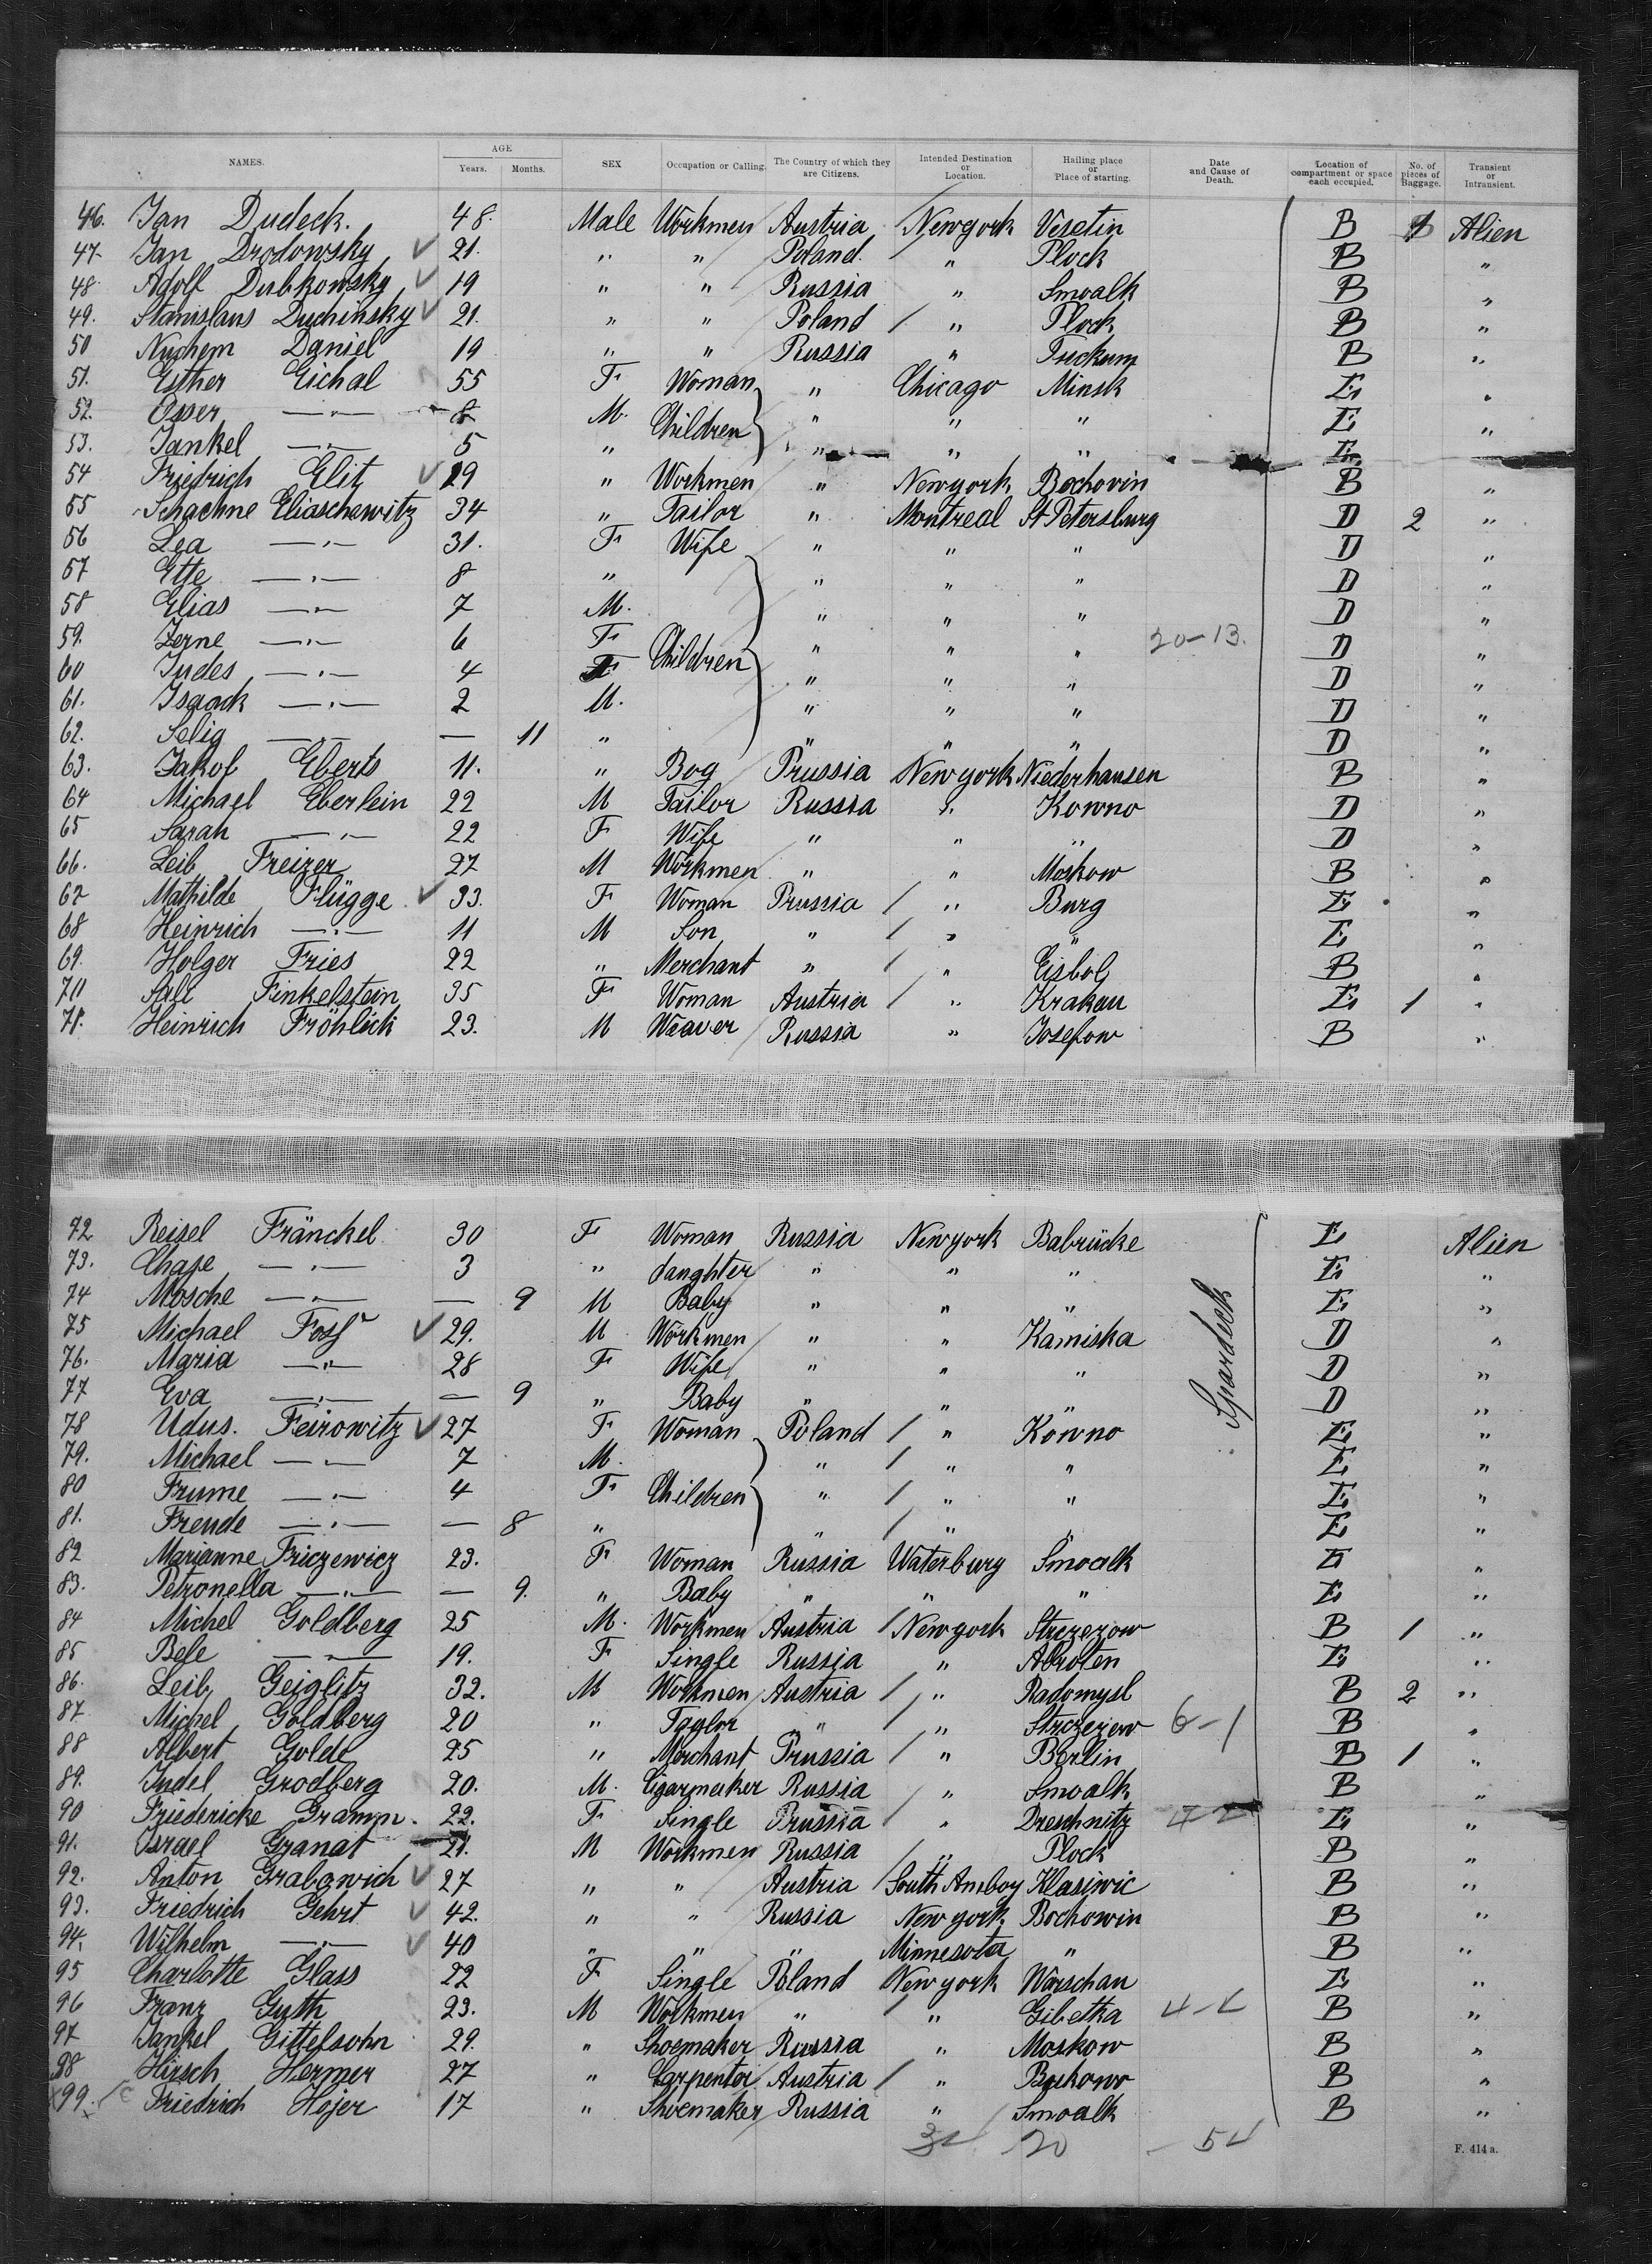 NAMES. AGE Years. Months. SEX Occupation or Calling. The Country of which they are Citizens. Intended Destination or Location. Hailing place or Place of starting. Date and Cause of Death. Location of compartment or space each occupied. No. of pieces of Baggage. Transient or Intransient.
46. Jan Dudeck. 48. Male Workmen Austria Newyork Vesetin B 1 Alien
47. Jan Drodowsky 21. " " Poland. " Plock B "
48 Adolf Dubkowsky 19 " " Russia " Smoalk B "
49. Stanislaus Duchinsky 21. " " Poland " Plock B "
50 Nuchem Daniel 19 " " Russia " Tuckum B "
51. Esther Eichal 55 F Woman " Chicago Minsk E "
52. Osser —"— 8 M. Children " " " E "
53. Jankel —"— 5 " " " " E
54 Friedrich Elit 29 " Workmen " Newyork Bochovin B "
55 Schachne Eliaschewitz 34 " Tailor " Montreal St Petersburg D 2 "
56 Lea —"— 31. F Wife " " " D "
57 Ette —"— 8 " " " " D "
58 Elias —"— 7 M. " " " D "
59. Zerne —"— 6 F Children " " " 20-13. D "
60 Judes —"— 4 F " " " D "
61. Isaack —"— 2 M. " " " D "
62. Selig —"— — 11 " " " " D "
63. Jakob Eberts 11. " Boy Prussia Newyork Niederhausen B "
64 Michael Eberlein 22 M Tailor Russia " Kowno D "
65 Sarah —"— 22 F Wife " " " D "
66. Leib Freizer 27 M Workmen " " Moskow B "
67 Mathilde Flügge 33. F Woman Prussia " Burg E "
68 Heinrich —"— 11 M Son " " " E "
69. Holger Fries 22 " Merchant " " Eisbol B "
70 Sall Finkelstein 35 F Woman Austria " Krakau E 1 "
71. Heinrich Fröhlich 23. M Weaver Russia " Josefow B "
72 Reisel Fränckel 30 F Woman Russia Newyork Babrücke E Alien
73. Chaje —"— 3 " daughter " " " E "
74 Mosche —"— — 9 M Baby " " " E "
75 Michael Foss 29. M Workmen " " Kamiska D "
76. Maria —"— 28 F Wife " " " D "
77 Eva —"— — 9 " Baby " " " D "
Spardeck
78 Udus. Feirowitz 27 F Woman Poland " Kowno E "
79. Michael —"— 7 M. " " " E "
80 Frume —"— 4 F Children " " " E "
81. Freude —"— — 8 " " " " E "
82 Marianne Friczewicz 23. F Woman Russia Waterbury Smoalk E "
83. Petronella —"— — 9. " Baby " " " E "
84 Michel Goldberg 25 M. Workmen Austria Newyork Strzezow B 1 "
85 Bele —"— 19. F Single Russia " Abroten E "
86. Leib Geiglitz 32. M Workmen Austria " Radomysl B 2 "
87 Michel Goldberg 20 " Taylor " " Strczezew 6-1 B "
88 Albert Golde 25 " Merchant Prussia " Berlin B 1 "
89. Judel Grodberg 20. M. Cigarmaker Russia " Smoalk B "
90 Friedericke Gramm. 22. F Single Prussia " Dreschnitz E "
91. Israel Granat 21. M Workmen Russia " Plock B "
92. Anton Grabowich 27 " " Austria South Amboy Klasiwic B "
93. Friedrich Gehrt 42. " " Russia New york Bochowin B "
94. Wilhelm —"— 40 " " " Minnesota " B "
95 Charlotte Glass 22 F Single Poland Newyork Warschau E "
96 Franz Guth 23. M Workmen " " Gibetka B "
97 Jankel Gittelsohn 29. " Shoemaker Russia " Moskow B "
98 Hirsch Hermer 27 " Carpenter Austria " Buskowo B "
99. Friedrich Hejer 17 " Shoemaker Russia " Smoalk B "
34 20 - 54
F. 414 a.